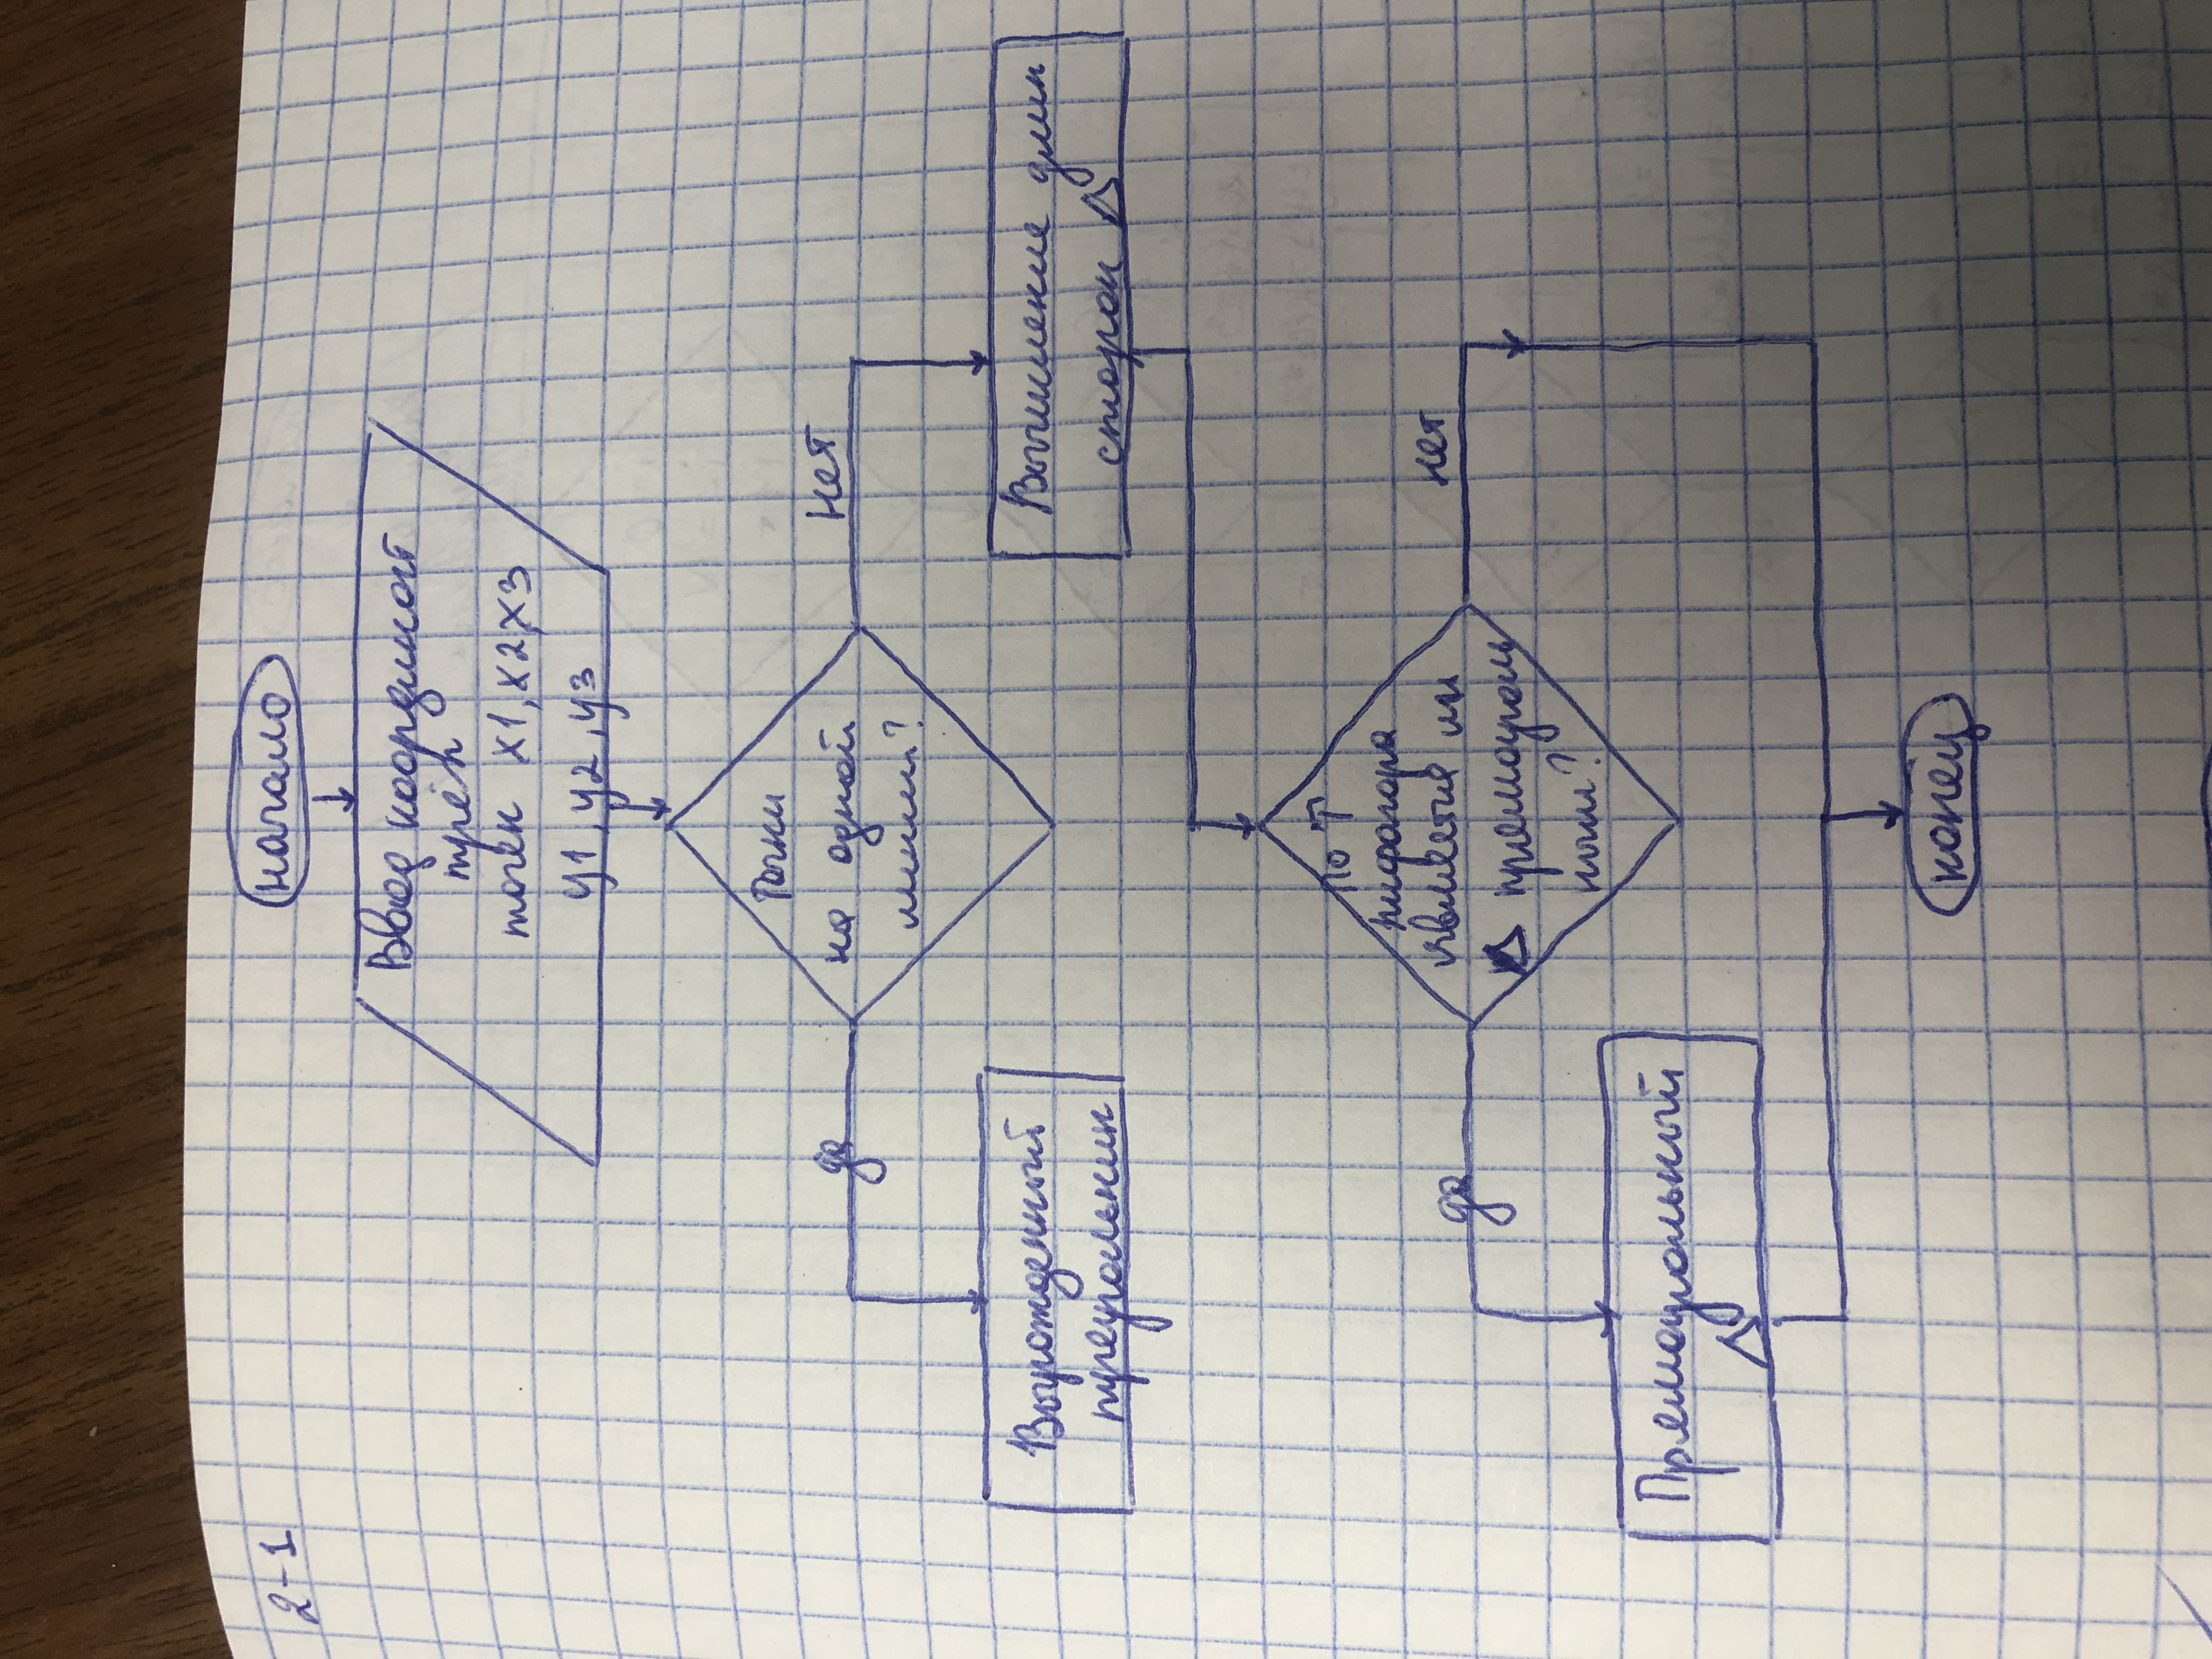 2-1
начало
Ввод координат
трёх
точек x1, x2, x3
y1, y2, y3
Точки
на одной
линии?
да
нет
Вырожденный
треугольник
Вычисление длин
сторон
По Т
пифагора
является ли
прямоуголь
ным?
да
нет
Прямоугольный
конец